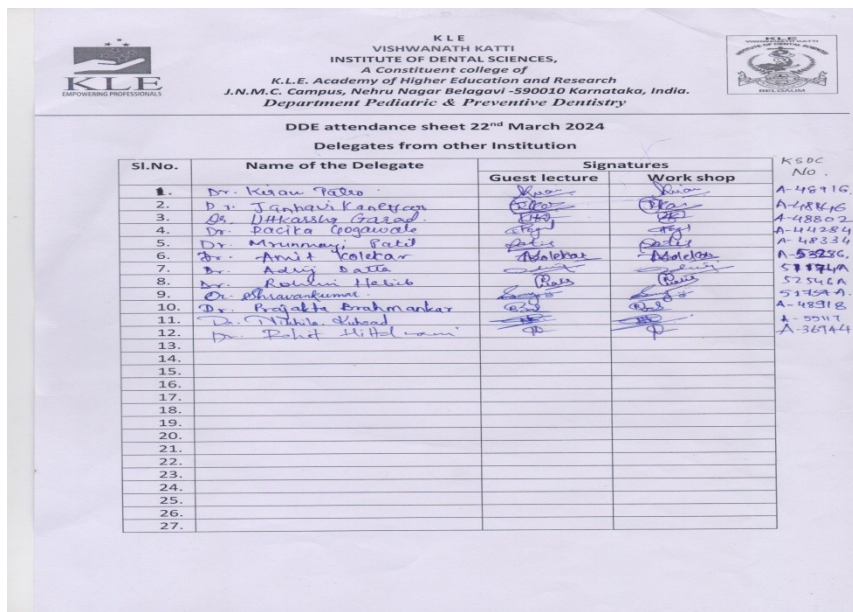 KLE
EMPOWERING PROFESSIONALS
K L E
VISHWANATH KATTI
INSTITUTE OF DENTAL SCIENCES,
A Constituent college of
K.L.E. Academy of Higher Education and Research
J.N.M.C. Campus, Nehru Nagar Belagavi -590010 Karnataka, India.
Department Pediatric & Preventive Dentistry
BELGAUM
DDE attendance sheet 22nd March 2024
Delegates from other Institution
Sl.No. Name of the Delegate Signatures KSDC No.
Guest lecture Work shop
1. Dr. Kiran A-48916.
2. Dr. Janhavi
3. Dr. Utkarsha Garad. A-48802
4. Dr. Racika Gogawale A-44284
5. Dr. Mrunmayi Patil A-48334
6. Dr. Amit Koletar AKoletar AKoletar
7. Dr. Datta
8. Dr. Rohini Habib 52546A
9. Dr. Shravankumar.
10. Dr. Prajakta Brahmankar A-48918
11. Dr. Nikhila
12. Dr. Rohit A-36944
13.
14.
15.
16.
17.
18.
19.
20.
21.
22.
23.
24.
25.
26.
27.